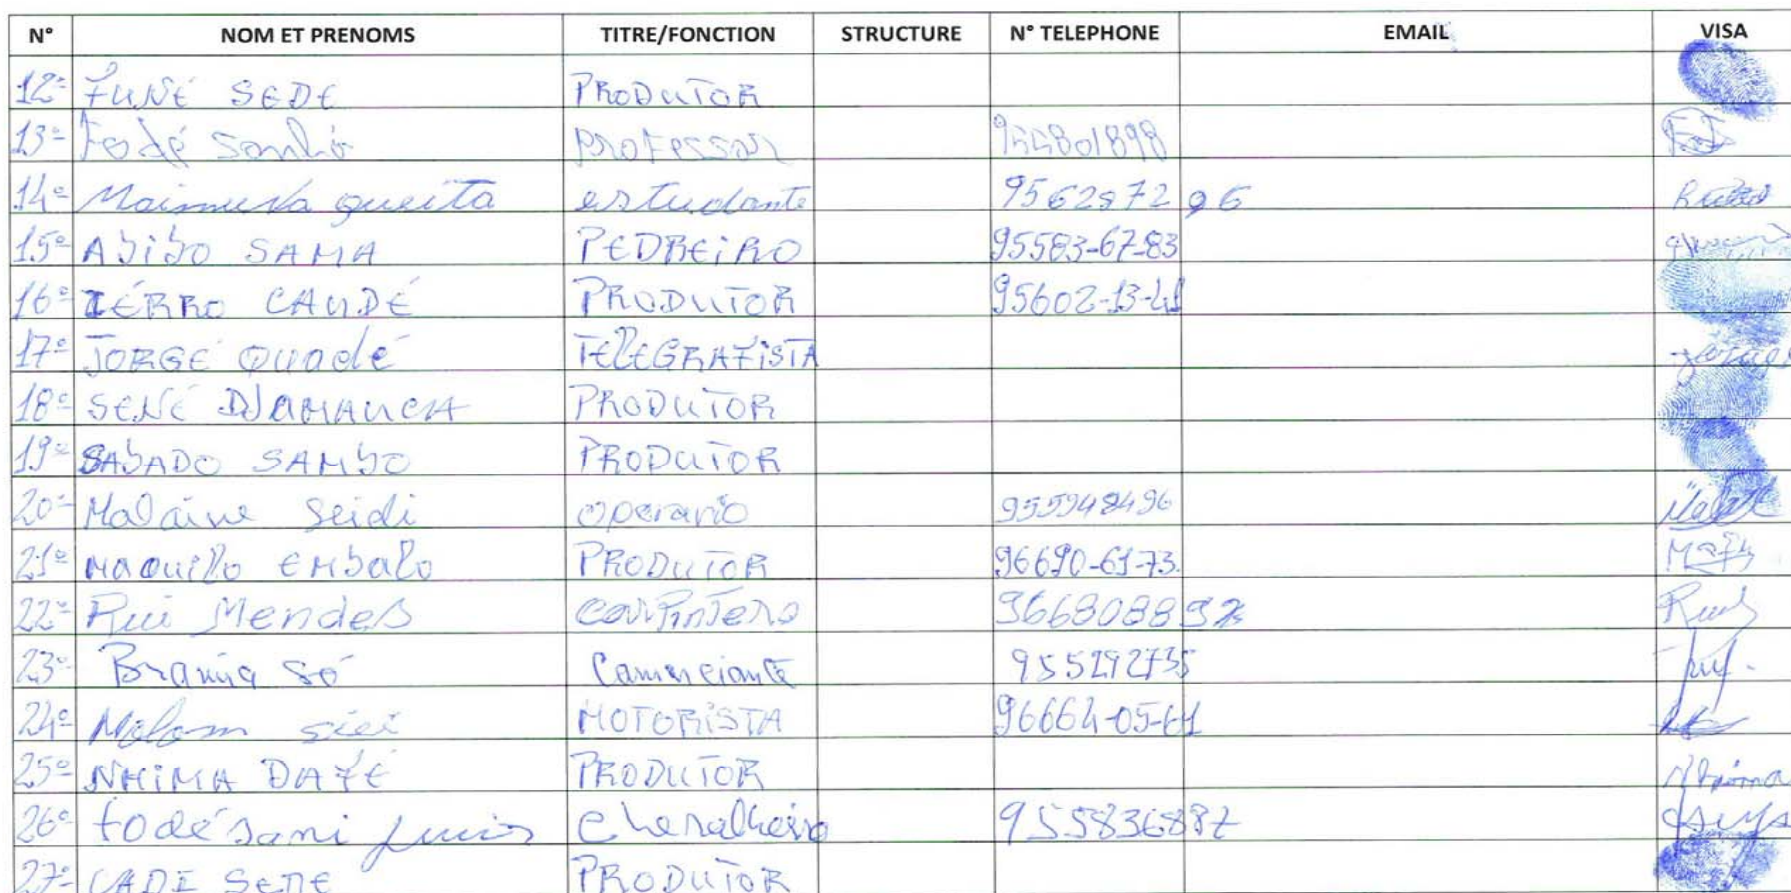 N° NOM ET PRENOMS TITRE/FONCTION STRUCTURE N° TELEPHONE EMAIL VISA
12º FUNÉ SEDE PRODUTOR
13º Fodé Sanhá professor 955801898
14º Maimuna queita estudante 956297296
15º AbibO SAMA PEDREiRO 95583-67-83
16º IÉRRO CANDÉ PRODUTOR 95602-13-41
17º JORGE Quadé TELEGRAFISTA
18º SENÉ DJAMANCA PRODUTOR
19º SAbADO SAMbO PRODUTOR
20º Malaine Seidi operario 955948496
21º MAQUIlo EMbalo PRODUTOR 96690-61-73
22º Rui Mendes carPintero 966808892
23º Braima Só 955292735
24º Malam MOTORISTA 96664-05-61
25º NHIMA DAFÉ PRODUTOR Nhima
26º fodé sani 955836887
27º CADI SEDE PRODUTOR